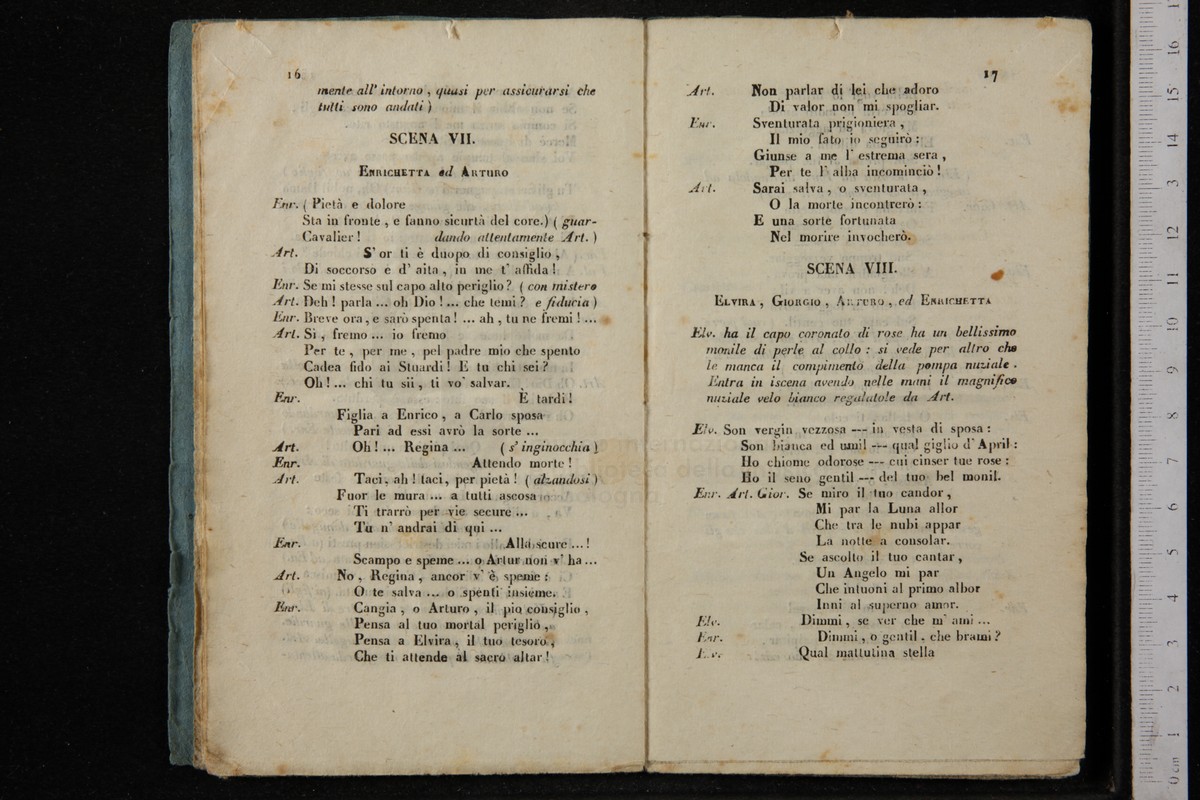 16
mente all' intorno , quasi per assicurarsi che
tutti sono andati )
SCENA VII.
ENRICHETTA ed ARTURO
Enr. ( Pietà e dolore
Sta in fronte , e fanno sicurtà del core.) ( guar-
Cavalier ! dando attentamente Art. )
Art. S' or ti è duopo di consiglio ,
Di soccorso e d' aita , in me t' affida !
Enr. Se mi stesse sul capo alto periglio ? ( con mistero
Art. Deh ! parla ... oh Dio ! ... che temi ? e fiducia )
Enr. Breve ora , e sarò spenta ! ... ah , tu ne fremi ! ...
Art. Si , fremo ... io fremo
Per te , per me , pel padre mio che spento
Cadea fido ai Stuardi ! E tu chi sei ?
Oh ! ... chi tu sii , ti vo' salvar.
Enr. È tardi !
Figlia a Enrico , a Carlo sposa
Pari ad essi avrò la sorte ...
Art. Oh ! ... Regina ... ( s' inginocchia )
Enr. Attendo morte !
Art. Taci , ah ! taci , per pietà ! ( alzandosi )
Fuor le mura ... a tutti ascosa
Ti trarrò per vie secure ...
Tu n' andrai di qui ...
Enr. Alla scure ... !
Scampo e speme ... o Artur non v' ha ...
Art. No , Regina , ancor v' è speme :
O te salva ... o spenti insieme.
Enr. Cangia , o Arturo , il pio consiglio ,
Pensa al tuo mortal periglio ,
Pensa a Elvira , il tuo tesoro ,
Che ti attende al sacro altar !
17
Art. Non parlar di lei che adoro
Di valor non mi spogliar.
Enr. Sventurata prigioniera ,
Il mio fato io seguirò :
Giunse a me l' estrema sera ,
Per te l' alba incominciò !
Art. Sarai salva , o sventurata ,
O la morte incontrerò :
E una sorte fortunata
Nel morire invocherò.
SCENA VIII.
ELVIRA , GIORGIO , ARTURO , ed ENRICHETTA
Elv. ha il capo coronato di rose ha un bellissimo
monile di perle al collo : si vede per altro che
le manca il compimento della pompa nuziale .
Entra in iscena avendo nelle mani il magnifico
nuziale velo bianco regalatole da Art.
Elv. Son vergin vezzosa --- in vesta di sposa :
Son bianca ed umil --- qual giglio d' April :
Ho chiome odorose --- cui cinser tue rose :
Ho il seno gentil --- del tuo bel monil.
Enr. Art. Gior. Se miro il tuo candor ,
Mi par la Luna allor
Che tra le nubi appar
La notte a consolar.
Se ascolto il tuo cantar ,
Un Angelo mi par
Che intuoni al primo albor
Inni al superno amor.
Elv. Dimmi , se ver che m' ami ...
Enr. Dimmi , o gentil , che brami ?
Elv. Qual mattutina stella